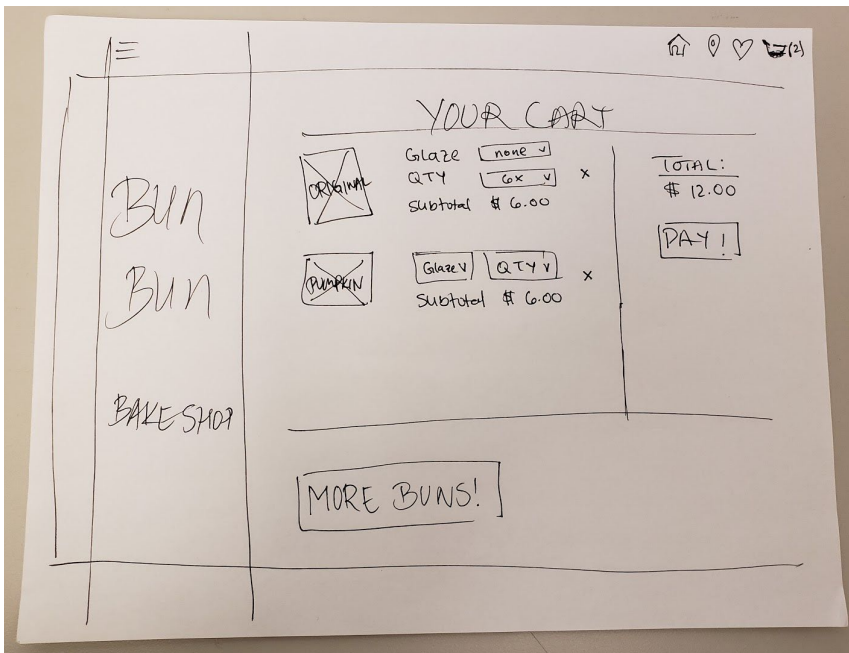 (2)
YOUR CART
Bun
Bun
BAKESHOP
ORIGINAL
Glaze none v
QTY 6x v
x
Subtotal $ 6.00
PUMPKIN
Glaze v QTY v
x
Subtotal $ 6.00
TOTAL:
$ 12.00
PAY!
MORE BUNS!